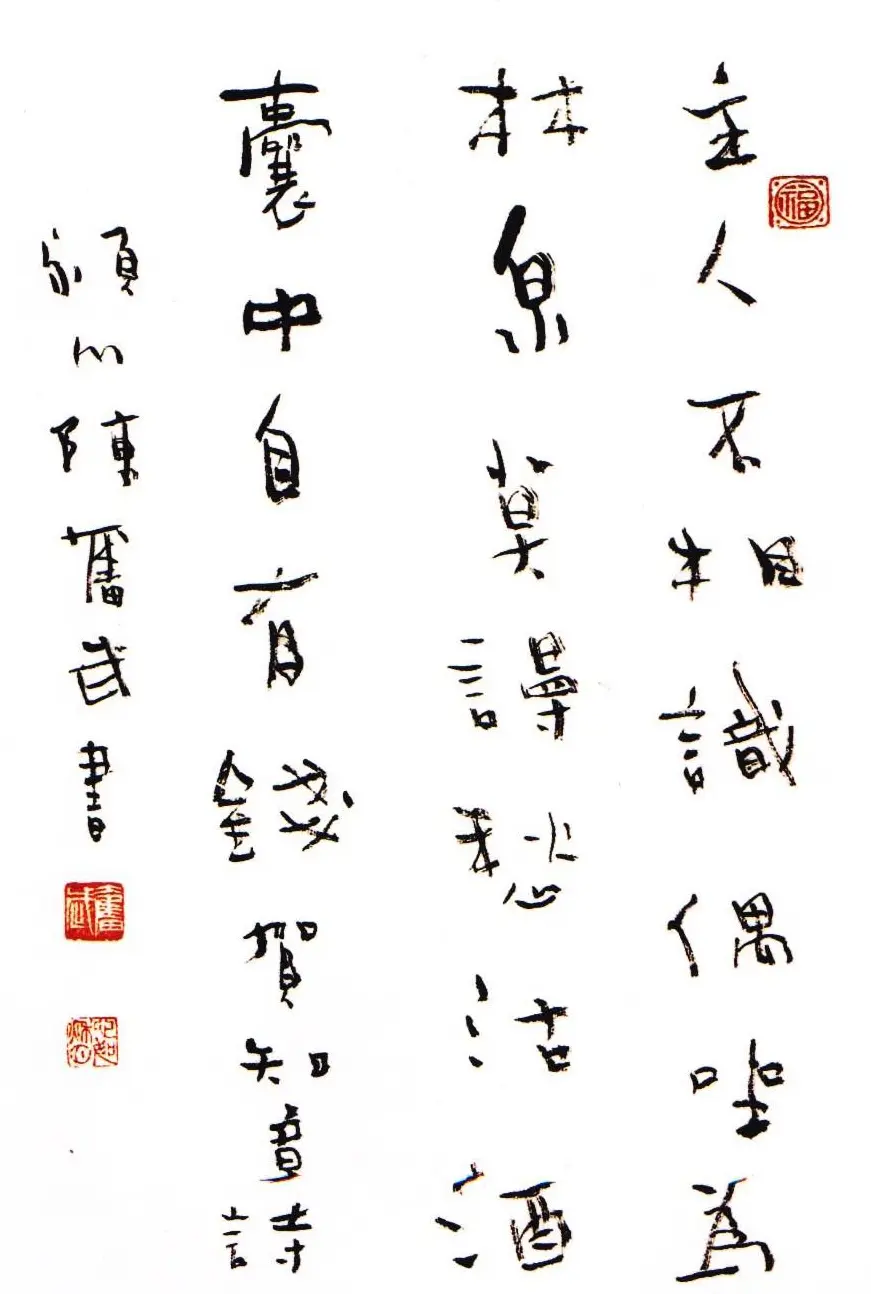 福
主人不相識偶坐為
林泉莫謾愁沽酒
囊中自有錢賀知章詩
潁川陳奮武書
奮武